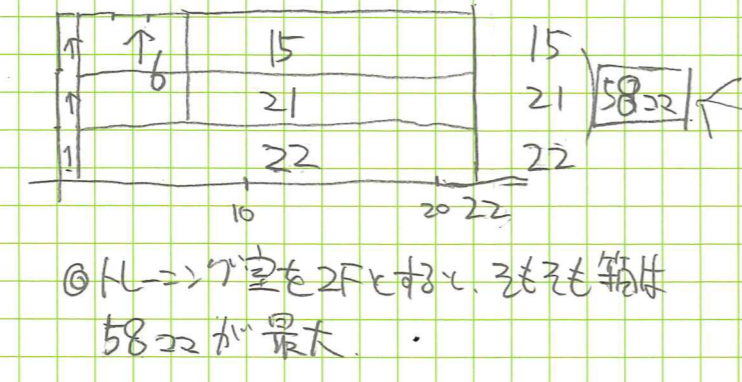 15 15
6
21 21 58コ
1 22 22
10 20 22
◎トレーニング室を2Fとすると、そもそも箱は
58コが最大.